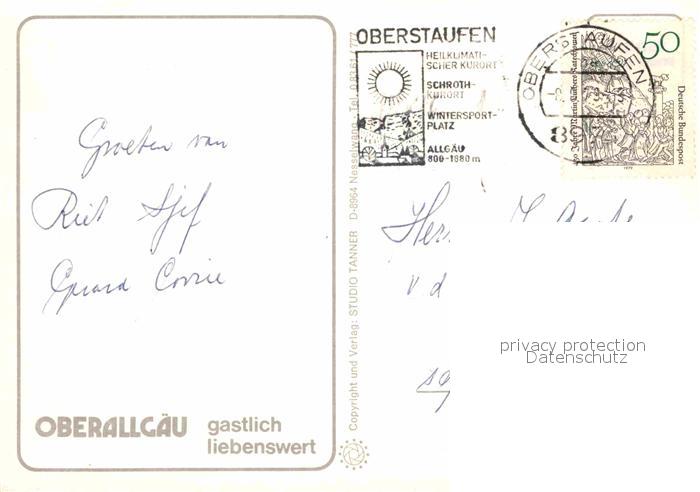 Groeten van
Riet Sjef
Gerard Corrie
OBERALLGÄU gastlich
liebenswert
Copyright und Verlag: STUDIO TANNER D-8964 Nesselwang - Tel. 0 83 61 / 777
OBERSTAUFEN
HEILKLIMATI-
SCHER KURORT
SCHROTH-
KURORT
WINTERSPORT-
PLATZ
ALLGÄU
800-1880 m
OBERSTAUFEN
50
Deutsche Bundespost
Martin Luthers Katechismus
1979
v d
privacy protection
Datenschutz